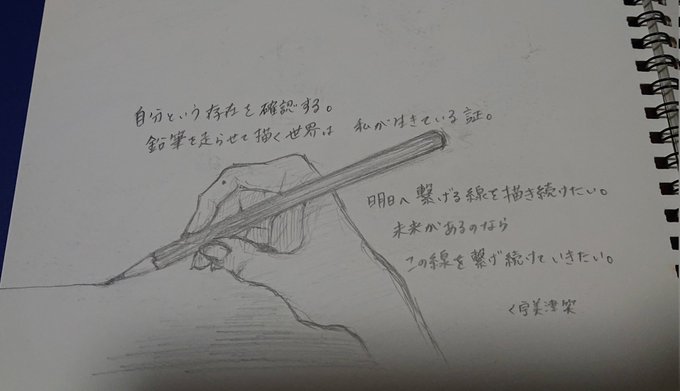 自分という存在を確認する。
鉛筆を走らせて描く世界は 私が生きている証。
明日へ繋げる線を描き続けたい。
未来があるのなら
この線を繋げ続けていきたい。